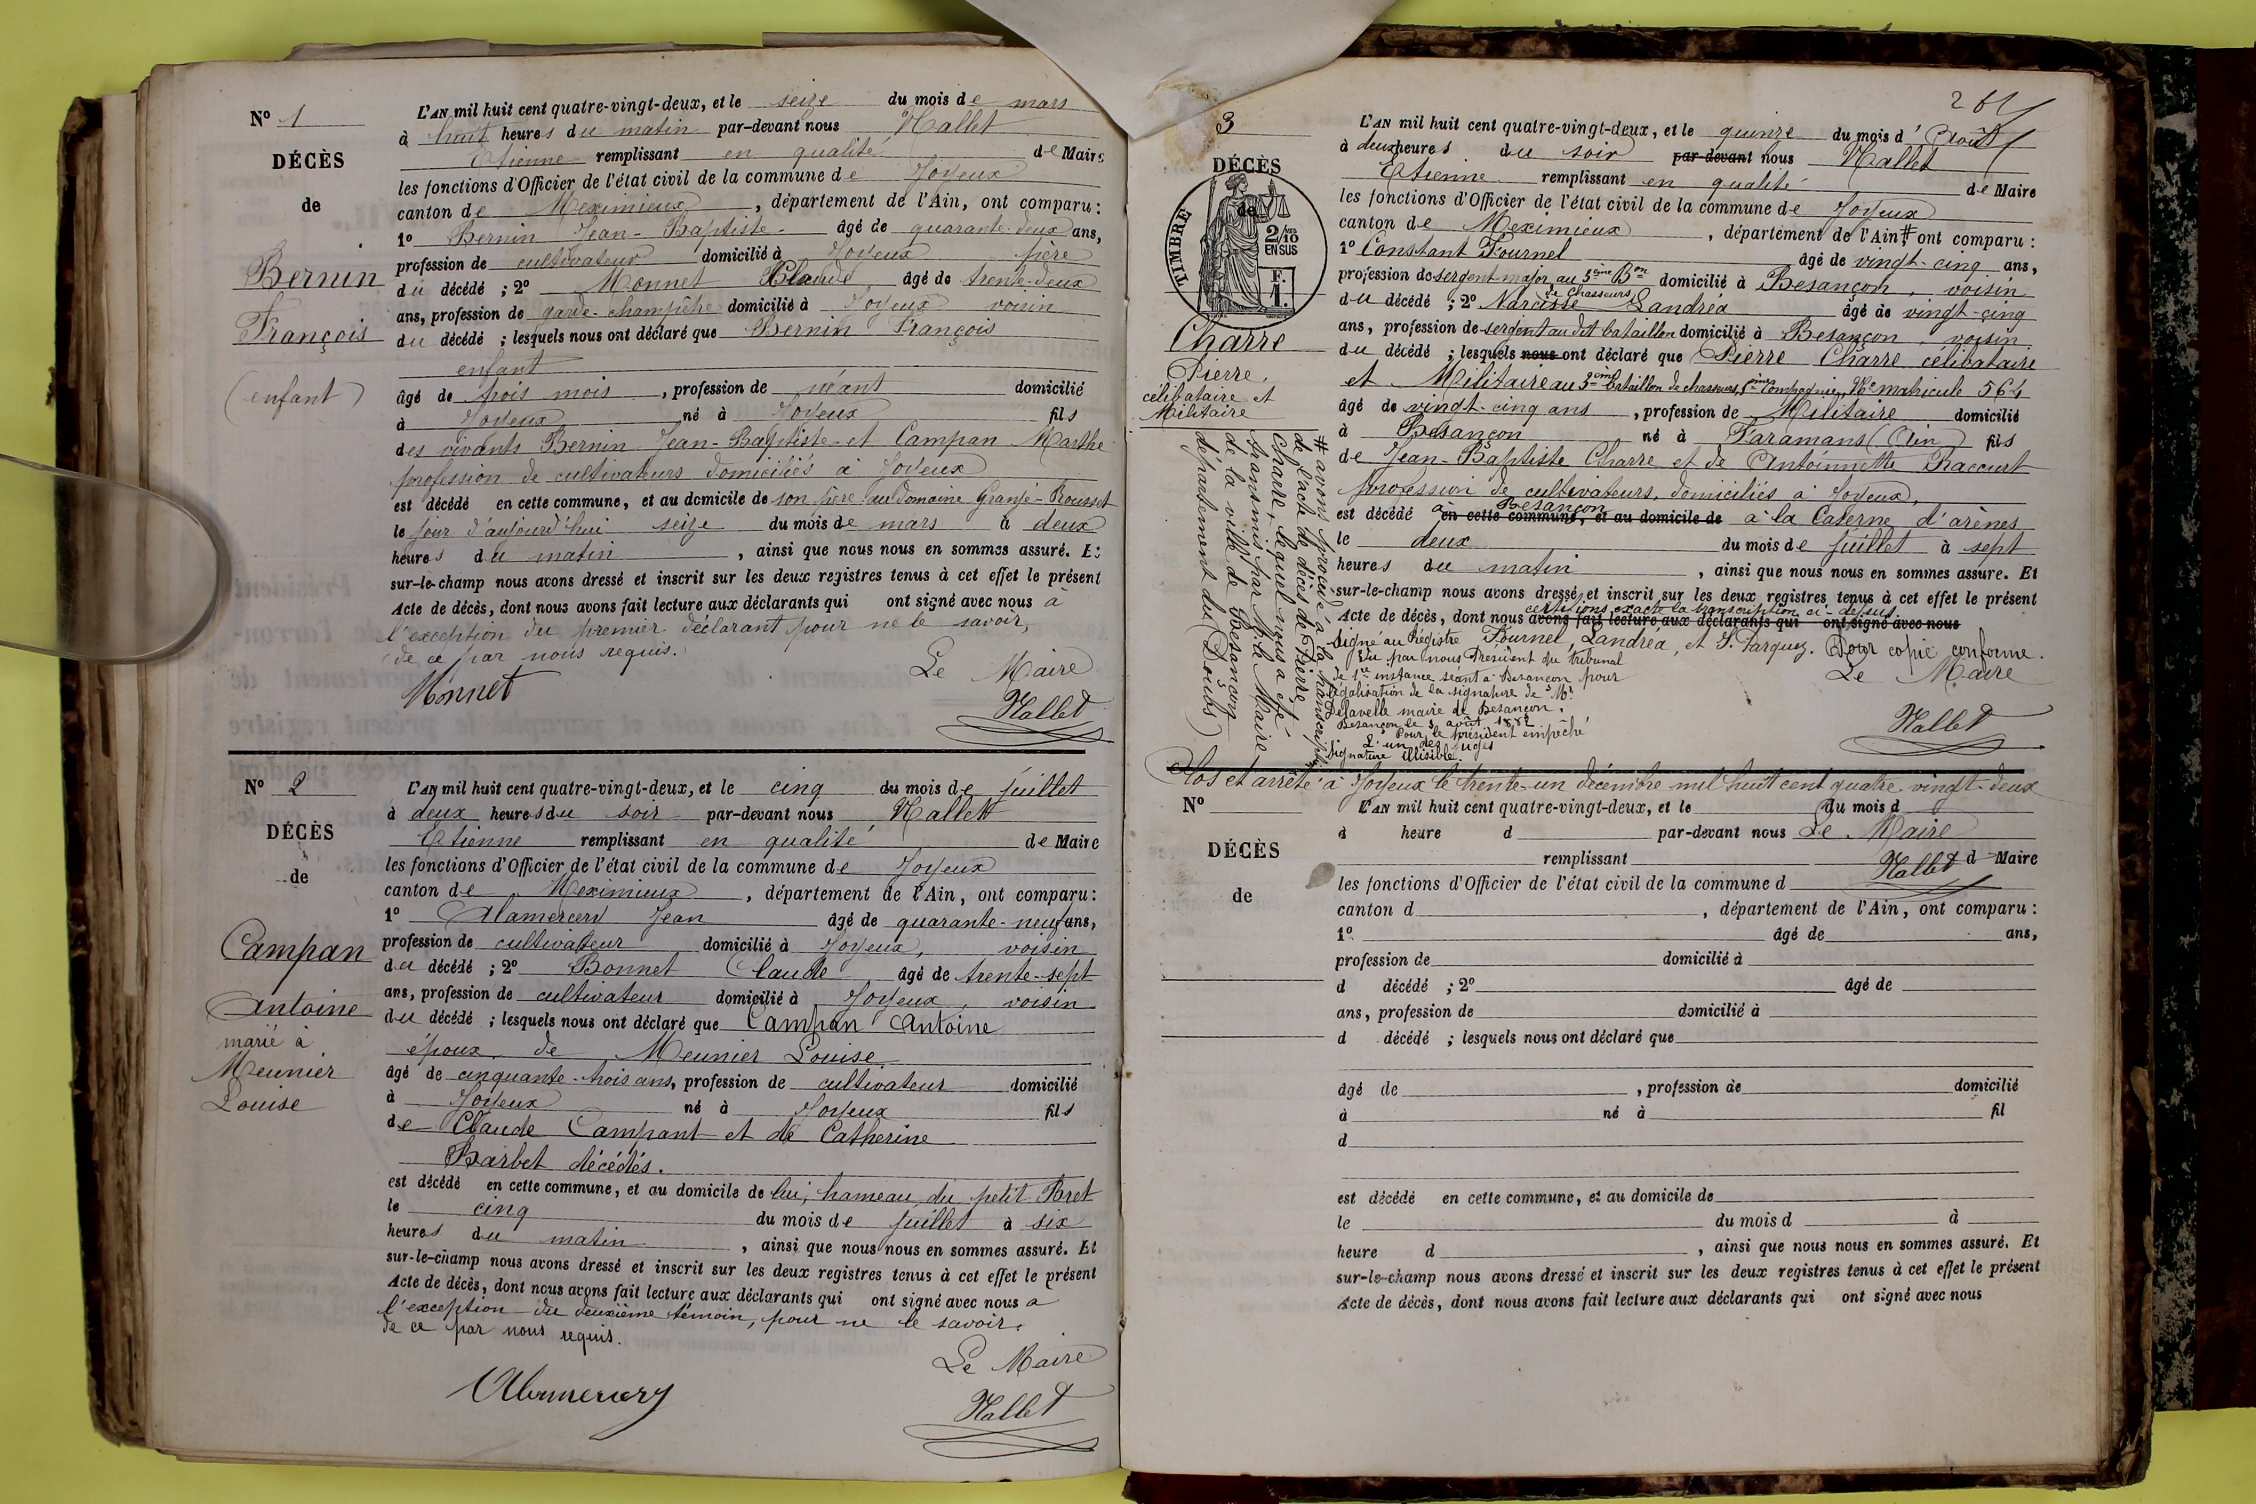 N° 1
DÉCÈS
de
Bernin
François
(enfant)
L'AN mil huit cent quatre-vingt-deux, et le seize du mois de mars
à huit heures du matin par-devant nous Hallet
Etienne remplissant en qualité de Maire
les fonctions d'Officier de l'état civil de la commune de Joyeux
canton de Meximieux, département de l'Ain, ont comparu :
1° Bernin Jean-Baptiste âgé de quarante-deux ans,
profession de cultivateur domicilié à Joyeux père
du décédé ; 2° Monnet Claude âgé de trente-deux
ans, profession de garde-champêtre domicilié à Joyeux voisin
du décédé ; lesquels nous ont déclaré que Bernin François
enfant
âgé de trois mois, profession de néant domicilié
à Joyeux né à Joyeux fils
des vivants Bernin Jean-Baptiste et Campan Marthe
profession de cultivateurs domiciliés à Joyeux
est décédé en cette commune, et au domicile de son père au domaine Granje-Rousset
le jour d'aujourd'hui seize du mois de mars à deux
heures du matin, ainsi que nous nous en sommes assuré. Et
sur-le-champ nous avons dressé et inscrit sur les deux registres tenus à cet effet le présent
Acte de décès, dont nous avons fait lecture aux déclarants qui ont signé avec nous à
l'exception du premier déclarant pour ne le savoir,
de ce par nous requis.
Le Maire
Monnet
Hallet
N° 2
DÉCÈS
de
Campan
Antoine
marié à
Meunier
Louise
L'AN mil huit cent quatre-vingt-deux, et le cinq du mois de juillet
à deux heures du soir par-devant nous Hallet
Etienne remplissant en qualité de Maire
les fonctions d'Officier de l'état civil de la commune de Joyeux
canton de Meximieux, département de l'Ain, ont comparu :
1° Alamercery Jean âgé de quarante-neuf ans,
profession de cultivateur domicilié à Joyeux, voisin
du décédé ; 2° Bonnet Claude âgé de trente-sept
ans, profession de cultivateur domicilié à Joyeux, voisin
du décédé ; lesquels nous ont déclaré que Campan Antoine
époux de Meunier Louise
âgé de cinquante-trois ans, profession de cultivateur domicilié
à Joyeux né à Joyeux fils
de Claude Campant et de Catherine
Barbet décédés.
est décédé en cette commune, et au domicile de lui, hameau du petit Paret
le cinq du mois de juillet à six
heures du matin, ainsi que nous nous en sommes assuré. Et
sur-le-champ nous avons dressé et inscrit sur les deux registres tenus à cet effet le présent
Acte de décès, dont nous avons fait lecture aux déclarants qui ont signé avec nous a
l'exception du deuxième témoin, pour ne le savoir,
de ce par nous requis.
Le Maire
Alamercery
Hallet
3
DÉCÈS
de
TIMBRE
2/10
EN SUS
F.
1.
Charre
Pierre,
célibataire et
Militaire
# avons procédé à la transcription
de l'acte de décès de Pierre
Charre, lequel nous a été
transmis par M. le Maire
de la ville de Besançon
département du (Doubs)
L'AN mil huit cent quatre-vingt-deux, et le quinze du mois d'Août
à deux heures du soir par-devant nous Hallet
Etienne remplissant en qualité de Maire
les fonctions d'Officier de l'état civil de la commune de Joyeux
canton de Meximieux, département de l'Ain, # ont comparu :
1° Constant Fournel âgé de vingt-cinq ans,
profession de sergent major au 5ème Bon domicilié à Besançon, voisin
de Chasseurs
du décédé ; 2° Narcisse Landréa âgé de vingt-cinq
ans, profession de sergent au dit bataillon domicilié à Besançon, voisin
du décédé ; lesquels nous ont déclaré que Pierre Charre célibataire
et Militaire au 5ème bataillon de chasseurs, Compagnie, matricule 564
âgé de vingt-cinq ans, profession de Militaire domicilié
à Besançon né à Faramans (Ain) fils
de Jean-Baptiste Charre et de Antoinnette Raccurt
profession de cultivateurs, domiciliés à Joyeux,
à Besançon
est décédé en cette commune, et au domicile de à la Caserne d'arènes
le deux du mois de juillet à sept
heures du matin, ainsi que nous nous en sommes assuré. Et
sur-le-champ nous avons dressé et inscrit sur les deux registres tenus à cet effet le présent
certifions exacte la transcription ci-dessus.
Acte de décès, dont nous avons fait lecture aux déclarants qui ont signé avec nous
Signé au Registre Fournel, Landréa, et S. Parquez. Pour copie conforme.
Vu par nous Président du tribunal
de 1re instance séant à Besançon pour
légalisation de la signature de Mr
Delavelle maire de Besançon.
Besançon le 5 août 1882
Pour le président empêché
L'un des juges
Signature illisible.
Le Maire
Hallet
Clos et arrêté à Joyeux le trente-un décembre mil huit cent quatre-vingt-deux
Le Maire
Hallet
N°
DÉCÈS
de
L'AN mil huit cent quatre-vingt-deux, et le du mois d
à heure d par-devant nous
remplissant d Maire
les fonctions d'Officier de l'état civil de la commune d
canton d, département de l'Ain, ont comparu :
1° âgé de ans,
profession de domicilié à
d décédé ; 2° âgé de
ans, profession de domicilié à
d décédé ; lesquels nous ont déclaré que
âgé de, profession de domicilié
à né à fil
d
est décédé en cette commune, et au domicile de
le du mois d à
heure d, ainsi que nous nous en sommes assuré. Et
sur-le-champ nous avons dressé et inscrit sur les deux registres tenus à cet effet le présent
Acte de décès, dont nous avons fait lecture aux déclarants qui ont signé avec nous